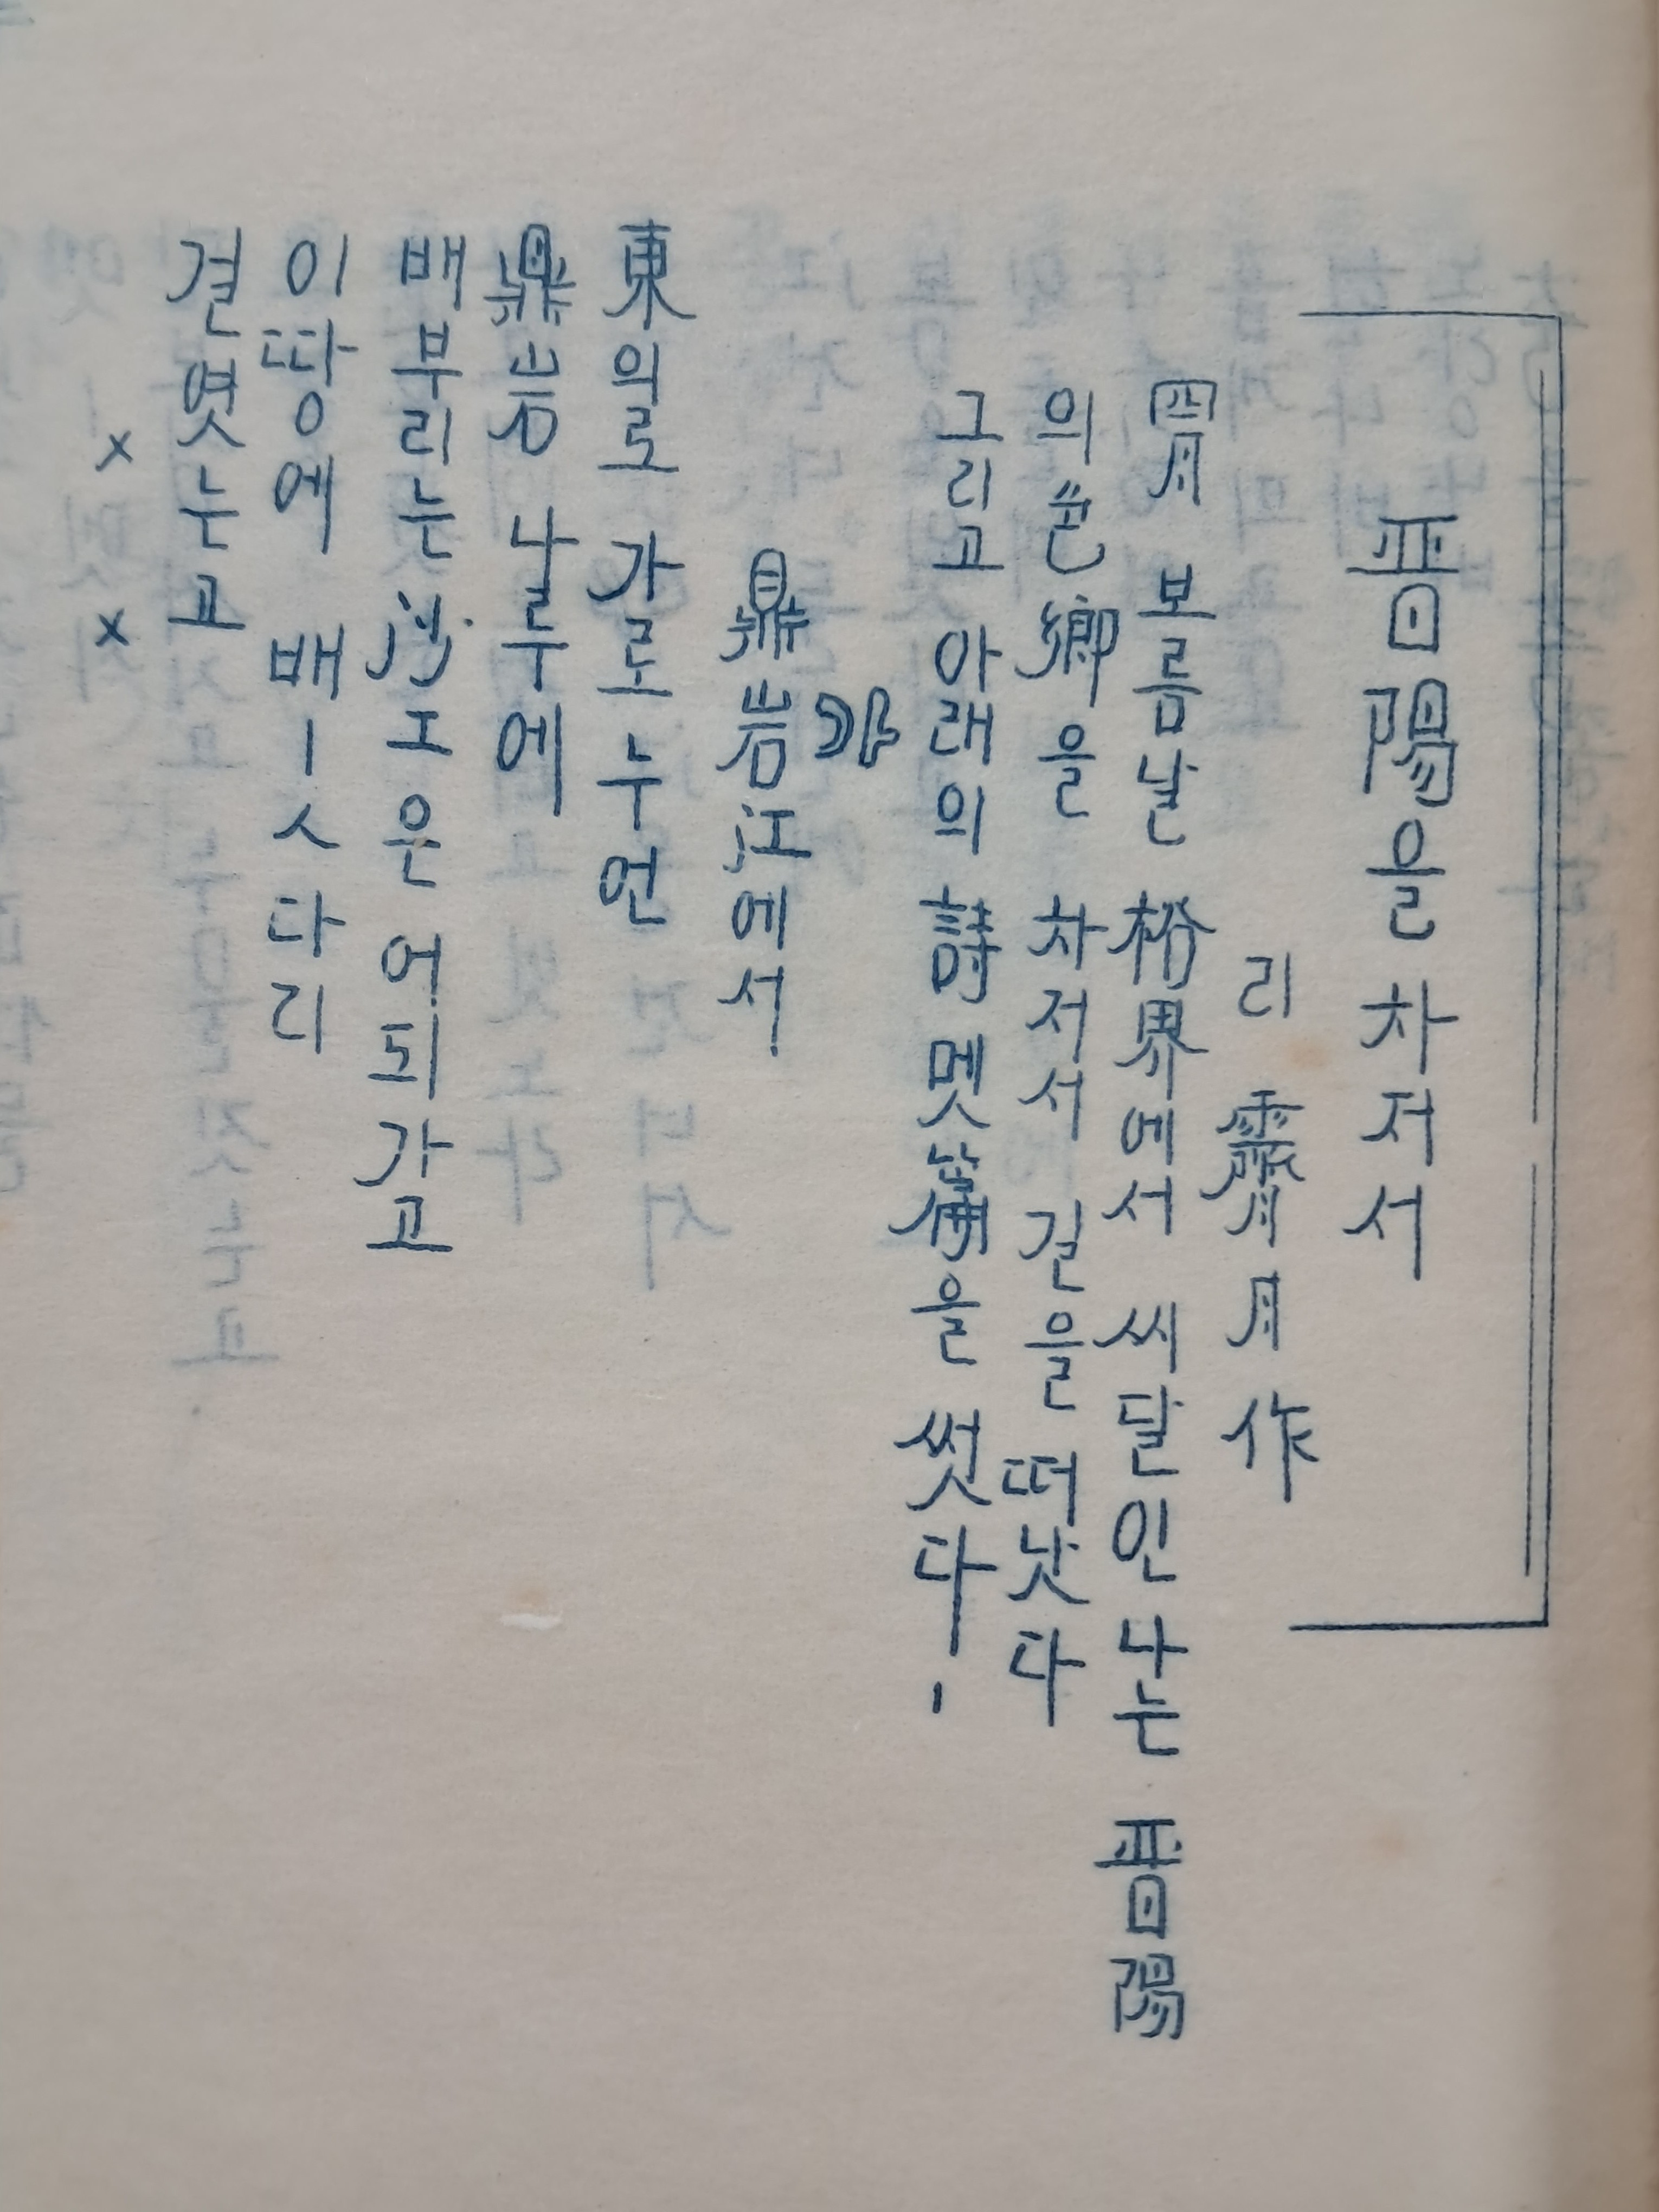 晋陽을 차저서
리 霽月 作
四月 보름날 씨달인 나는 晋陽
의 色鄕을 차저서 길을 떠낫다
그리고 아래의 詩 멧篇을 썻다ー
가
鼎岩江에서
東의로 가로누언
鼎岩 날누에
배부리는 沙工은 어되가고
이 땅에 배ㅣㅅ다리
결엿는고
x x